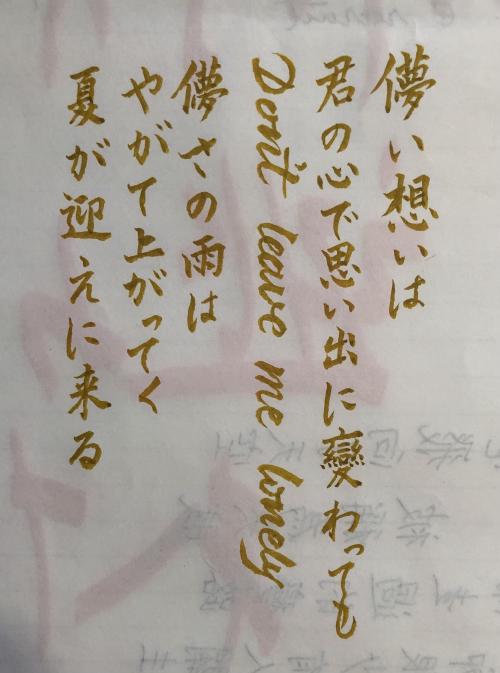 儚い想いは
君の心で思い出に變わっても
Don't leave me lonely
儚さの雨は
やがて上がってく
夏が迎えに来る